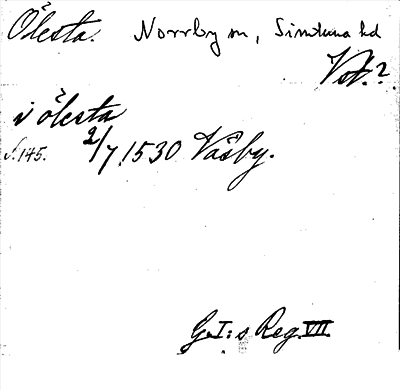 Ölesta. Norrby sn, Simtuna hd
Vstm.?
i ölesta
s. 145. 2/7 1530 Väsby.
G.I:s Reg. VII.